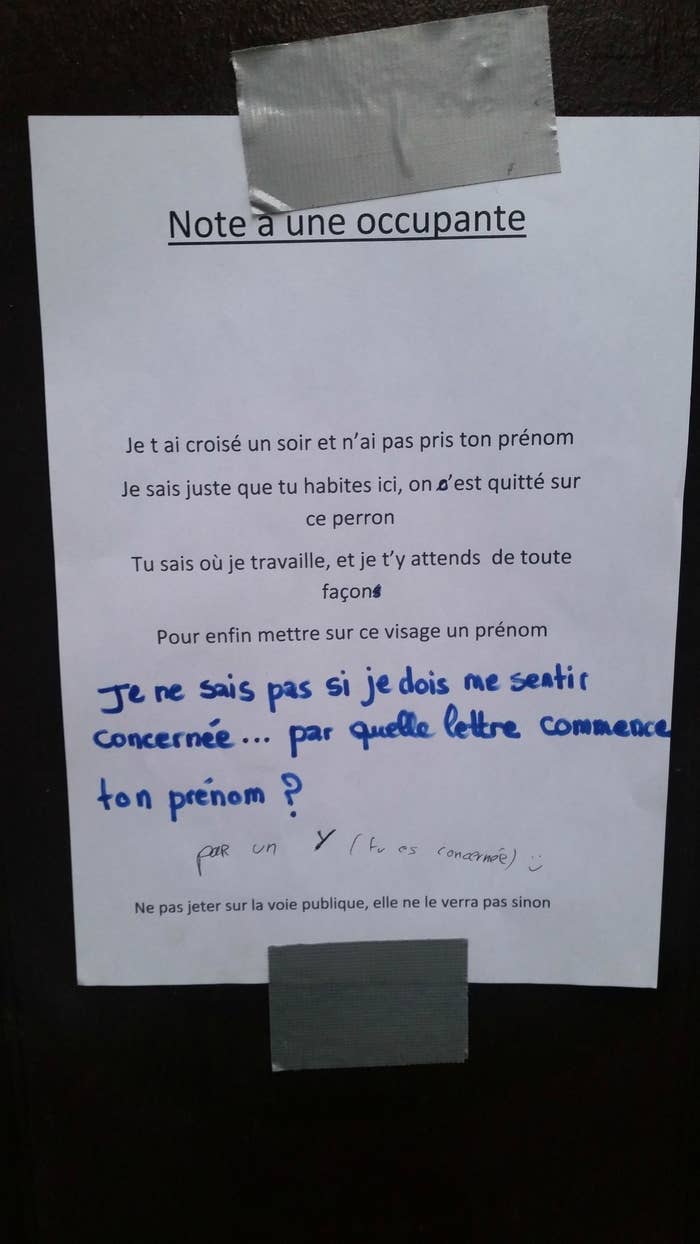 Note à une occupante
Je t ai croisé un soir et n’ai pas pris ton prénom
Je sais juste que tu habites ici, on s’est quitté sur
ce perron
Tu sais où je travaille, et je t’y attends de toute
façons
Pour enfin mettre sur ce visage un prénom
Je ne sais pas si je dois me sentir
concernée... par quelle lettre commence
ton prénom ?
par un Y (tu es concernée) :)
Ne pas jeter sur la voie publique, elle ne le verra pas sinon